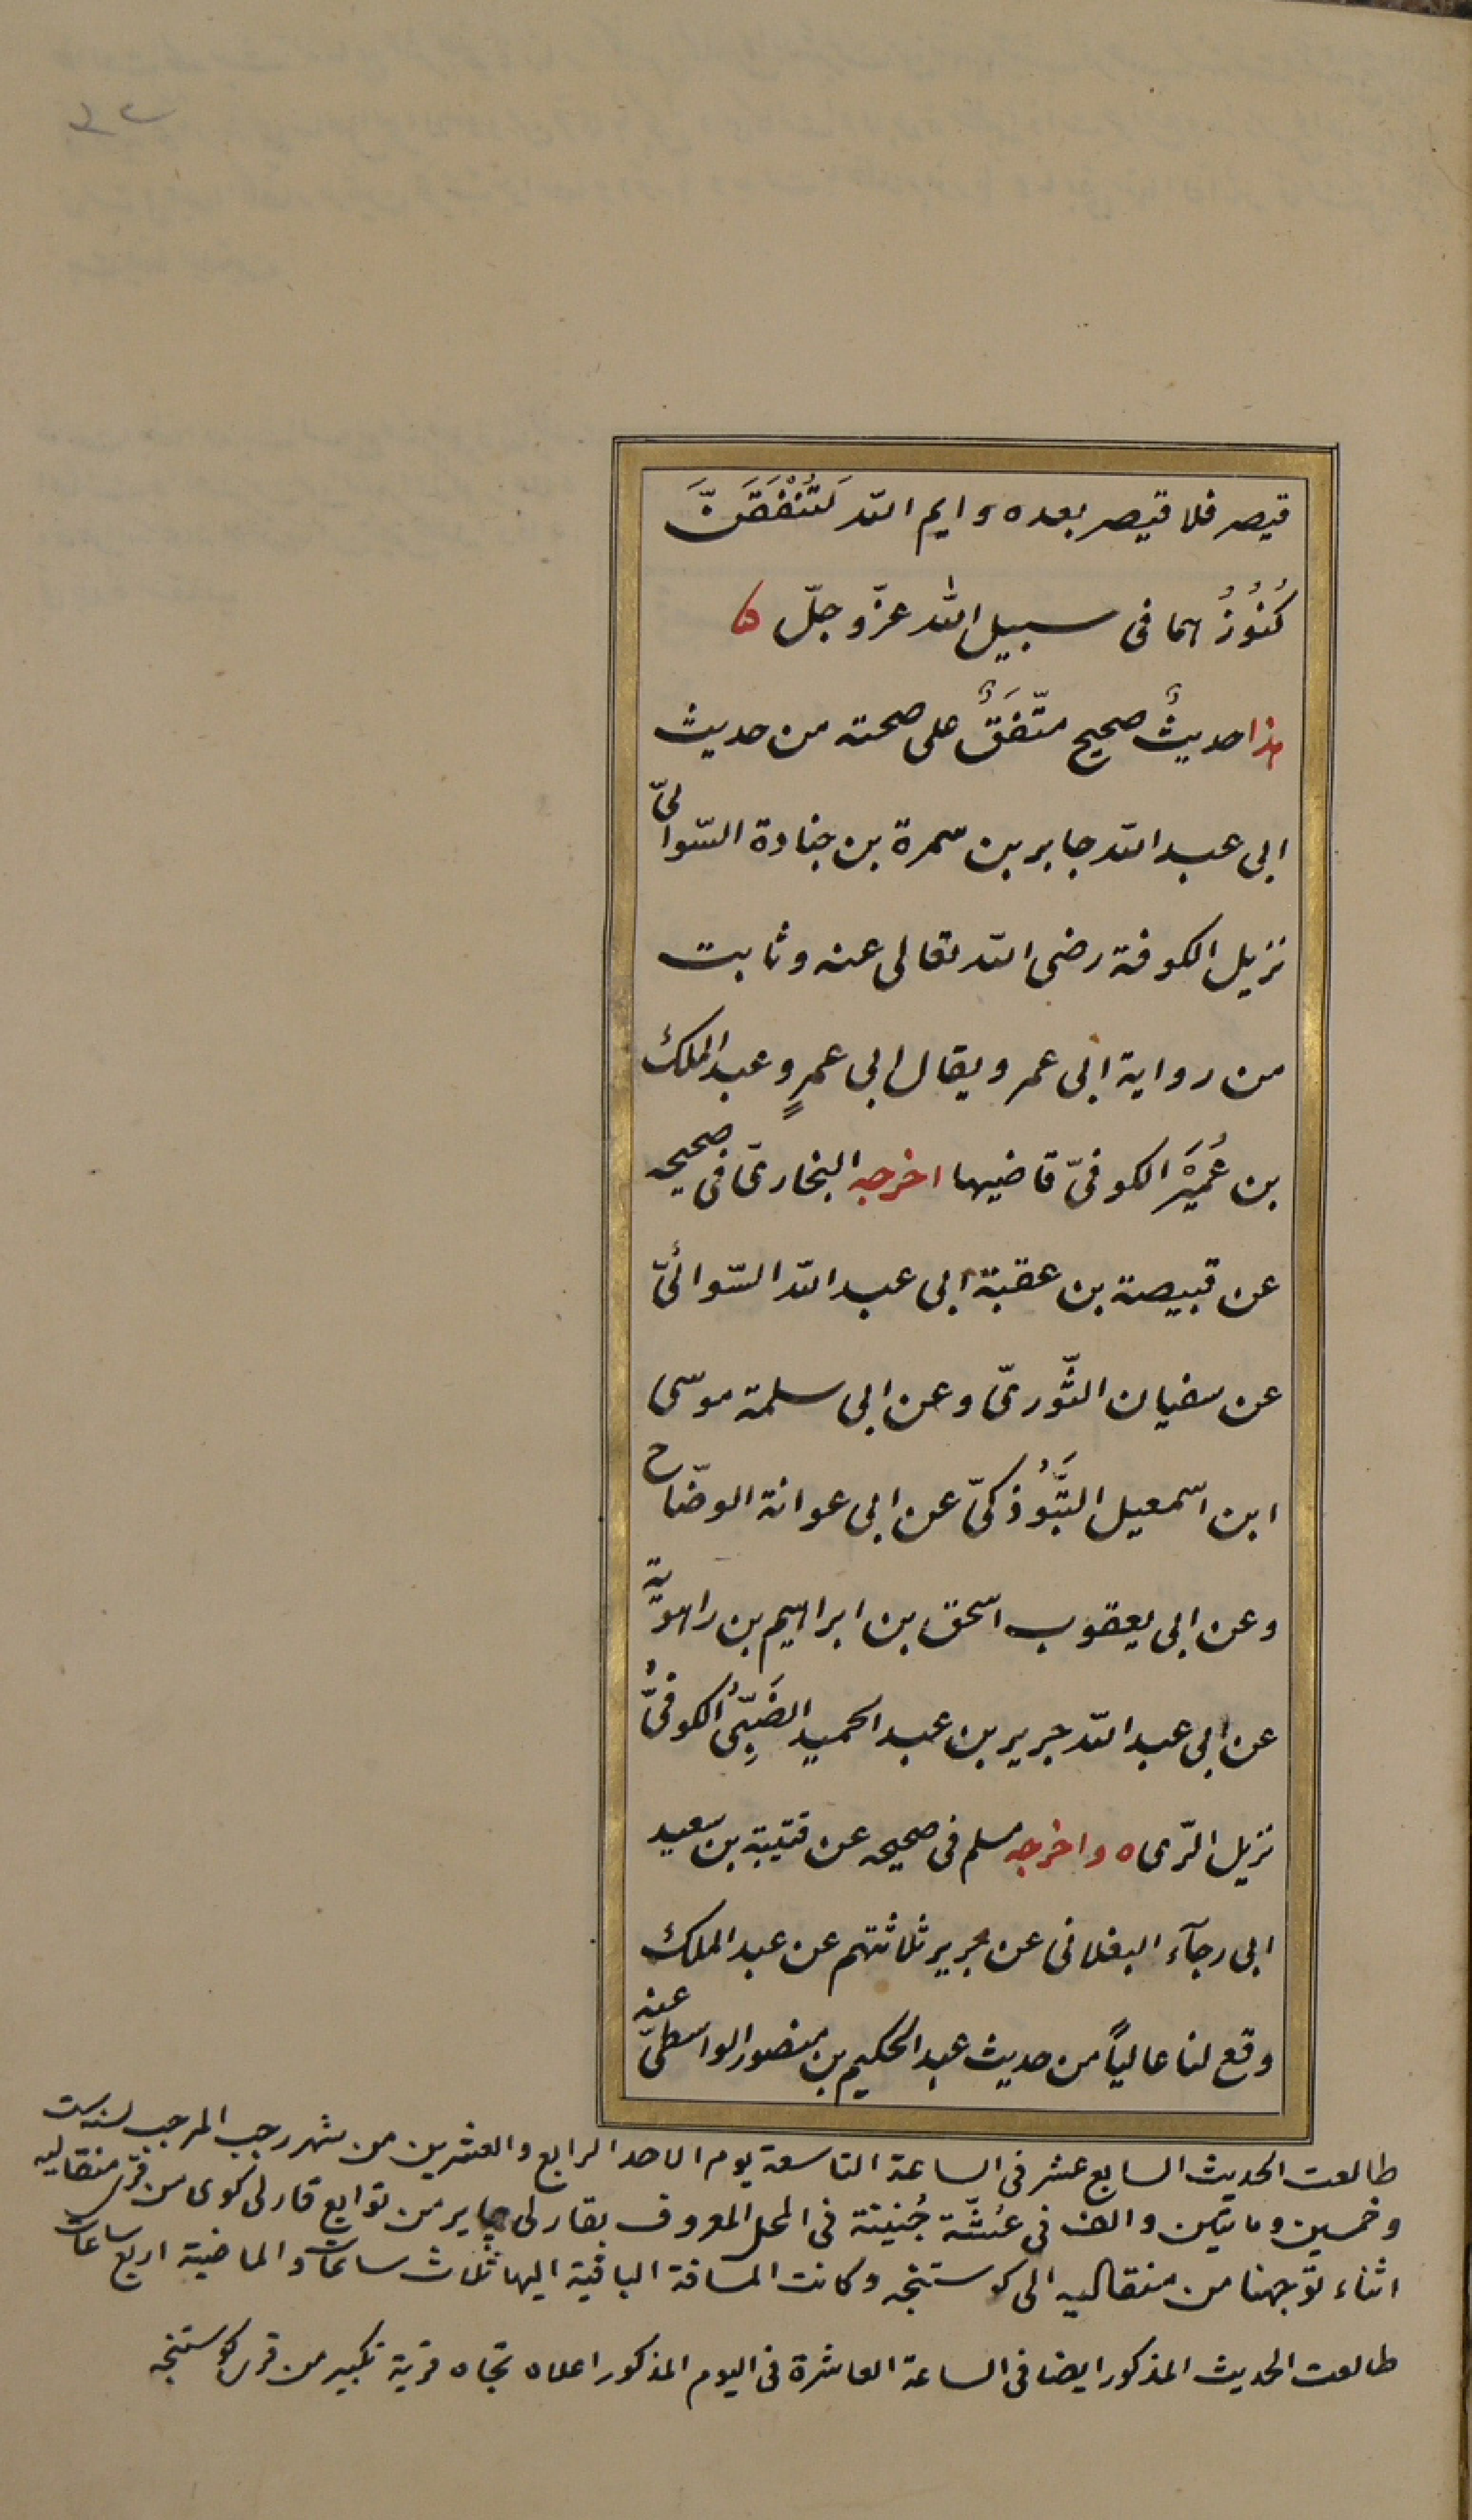 قيصر فلا قيصر بعده وايم الله لَتُنْفَقَنَّ
كُنُوْزُهما فى سبيل الله عزّ وجلّ ه
هذا حديثٌ صحيح متّفَقٌ على صحته من حديث
ابى عبد الله جابر بن سمرة بن جنادة السّوائىّ
نزيل الكوفة رضى الله تعالى عنه وثابت
من رواية ابى عمر ويقال ابى عمرٍو عبد الملك
بن عُمَيْرَ الكوفىّ قاضيها اخرجه البخارىّ فى صحيحه
عن قبيصة بن عقبة ابى عبد الله السّوائىّ
عن سفيان الثّورىّ وعن ابى سلمة موسى
ابن اسمعيل التَّبُوْذكىّ عن ابى عوانة الوضّاح
وعن ابى يعقوب اسحق بن ابراهيم بن راهويّة
عن ابى عبد الله جرير بن عبد الحميد الضَبِّىّ الكوفىّ
نزيل الرّى ه واخرجه مسلم فى صحيحه عن قتيبة بن سعيد
ابى رجآء البغلانى عن جرير ثلاثتهم عن عبد الملك
وقع لنا عالياً من حديث عبد الحكيم بن منصور الواسطىّ عنه
طالعت الحديث السابع عشر فى الساعة التاسعة يوم الاحد الرابع والعشرين من شهر رجب المرجب لسنة ست
وخمسين ومايتين والف فى عُشّة جُنينة فى المحل المعروف بقارلى چاير من توابع قارلى كوى من قرى منقاليه
اثناء توجهنا من منقاليه الى كوستنجه وكانت المسافة الباقية اليها ثلاث ساعات والماضية اربع ساعات
طالعت الحديث المذكور ايضا فى الساعة العاشرة فى اليوم المذكور اعلاه تجاه قرية تكبير من قرى كوستنجه